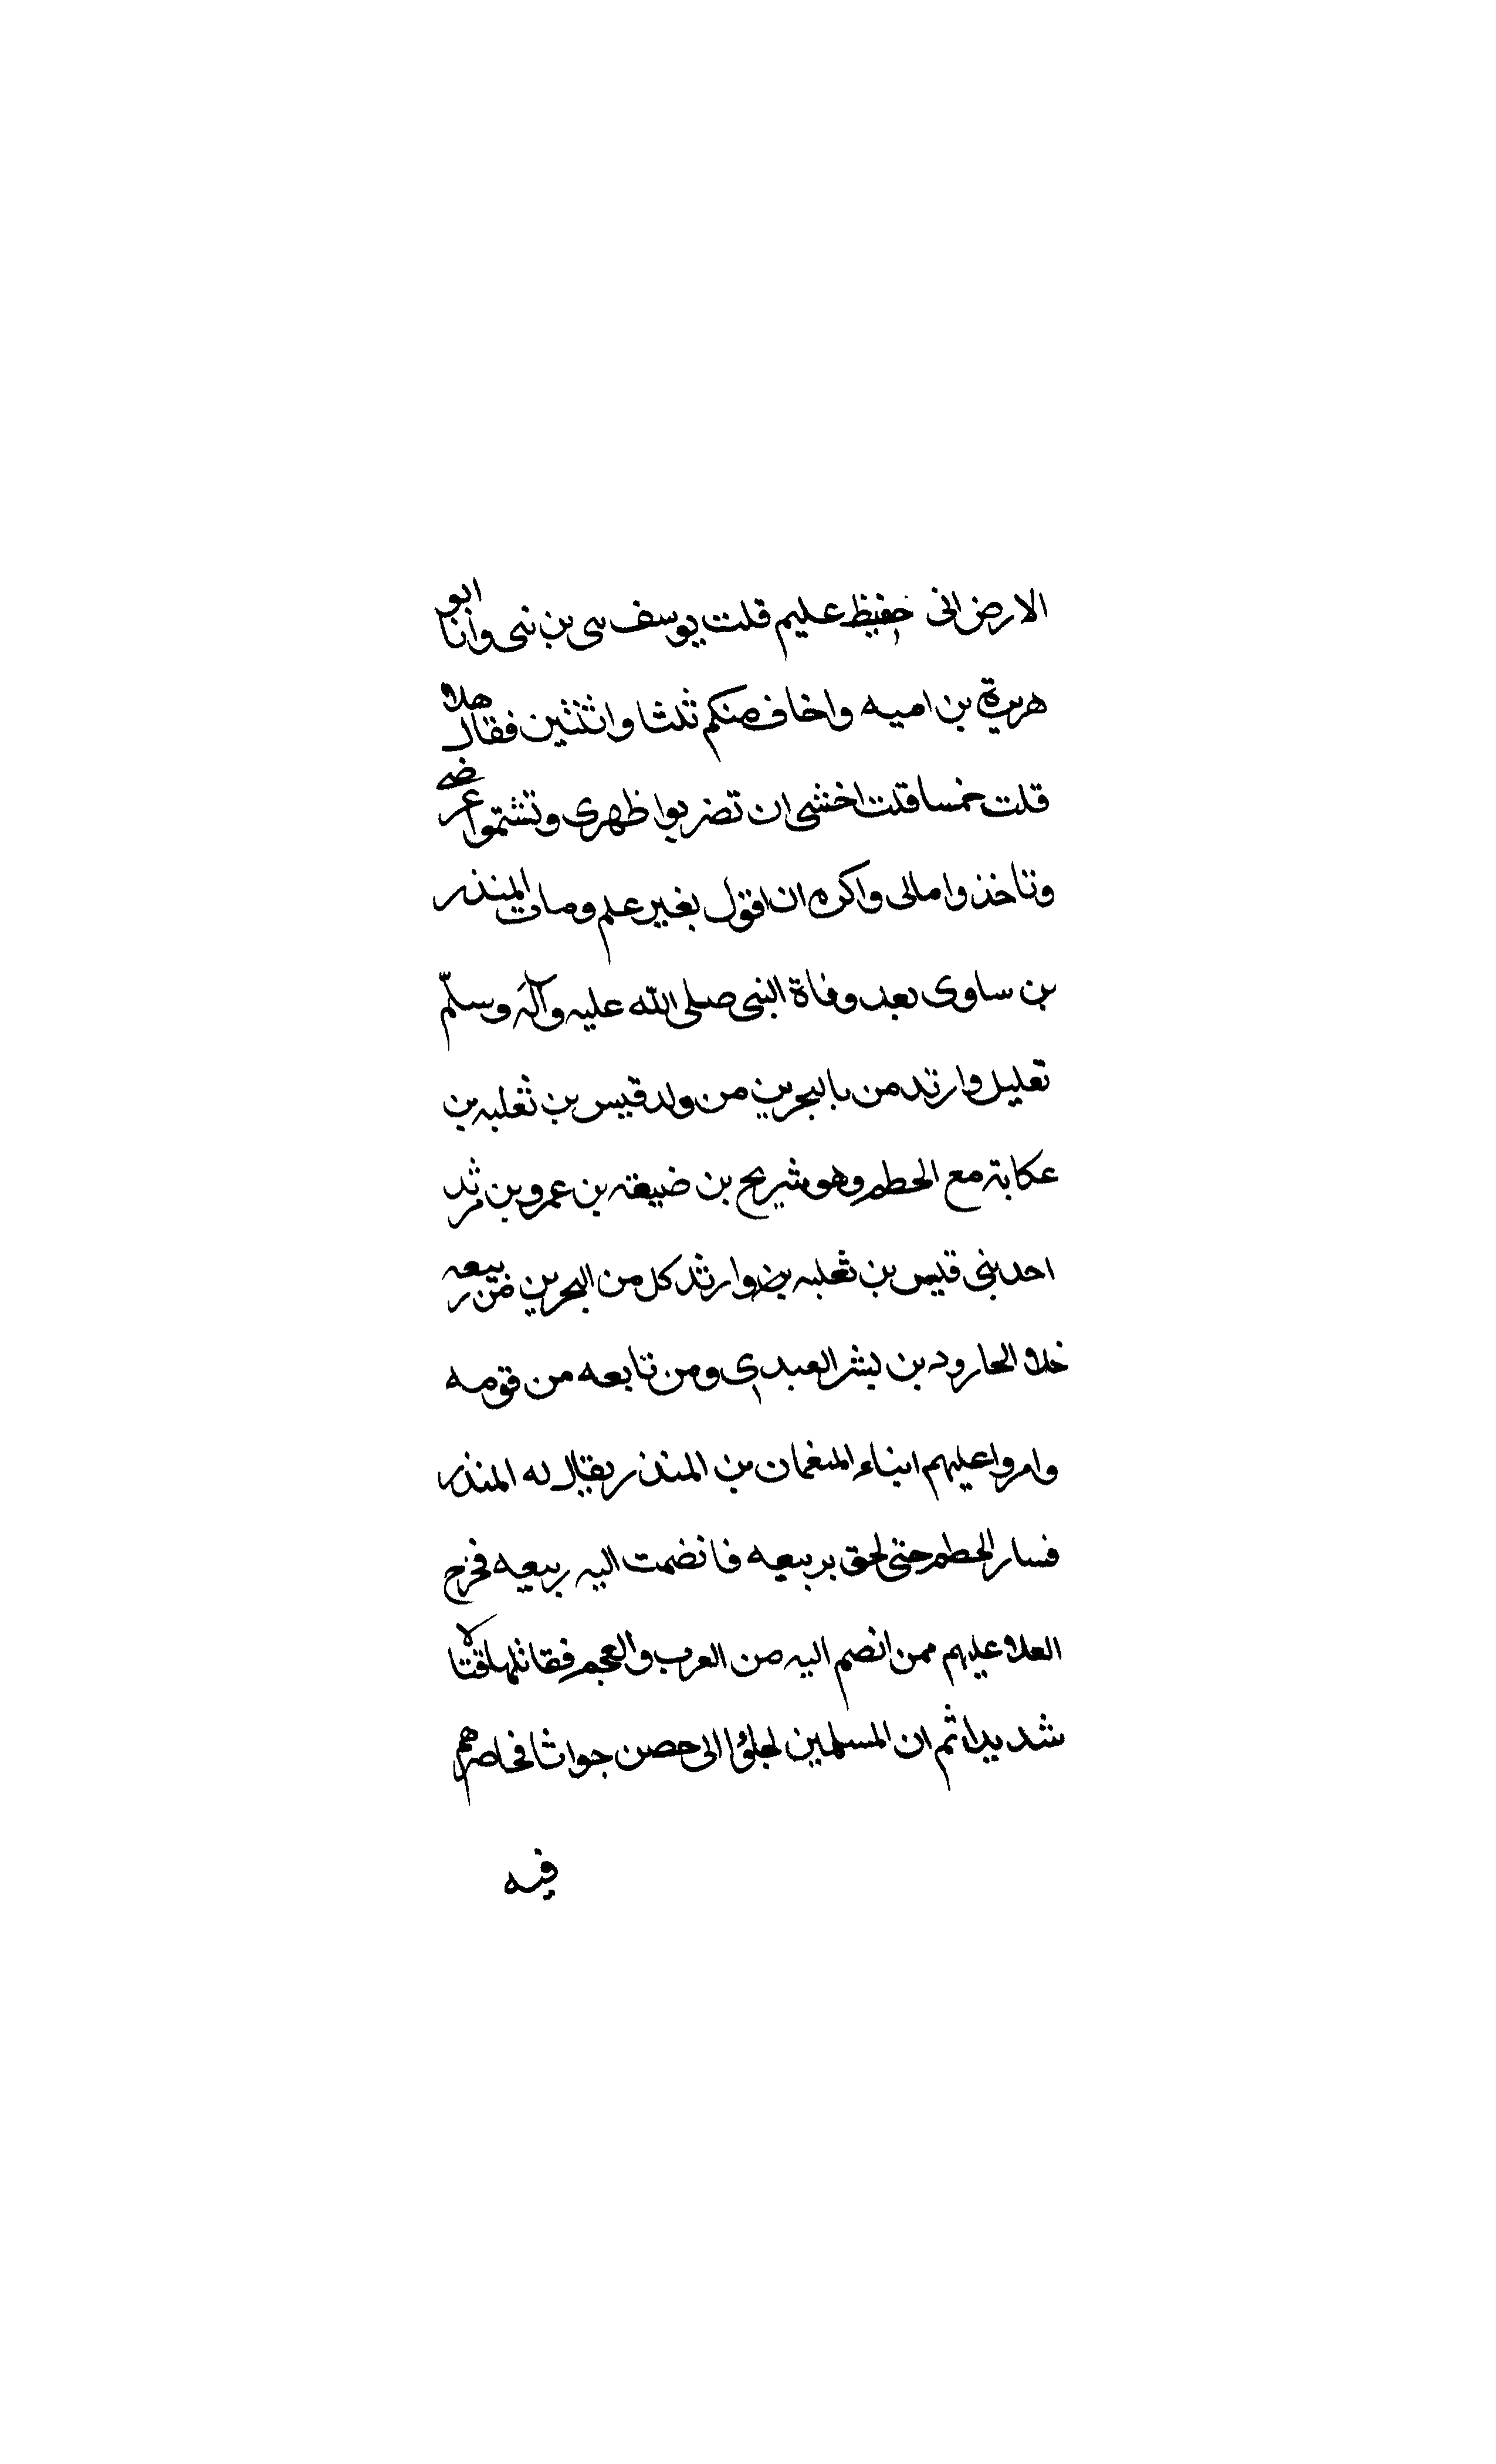 الارض انى حفيظ عليم قلت يوسف نبى بن نبى وانا ابو
هريرة بن اميه واخاف منكم ثلثا واثنتين فقال هلا
قلت خمسا قلت اخشى ان تضربوا ظهرى وتشتموا عرضى
وتاخذوا مالى واكره ان اقول بغير علم ومات المنذر
بن ساوى بعد وفاة النبى صلى الله عليه وآله وسلّم
تعليل وارتد من بالبحرين من ولد قيس بن ثعلبه بن
عكابة مع الحطم وهو شريح بن ضبيعة بن عمرو بن مرثد
احد بنى قيس بن ثعلبه وارتد كل من البحرين من ربيعه
خلا الجارود بن بشر العبدى ومن تابعه من قومه
وامروا عليهم ابناء النعمان بن المنذر يقال له المنذر
فسار الحطم حتى لحق بربيعه فانضمت اليه ربيعه فخرج
العلا عليهم ممن انضم اليه من العرب والعجم فقاتلهم قتالا
شديدا ثم ان المسلمين لجلؤا الى حصن جواثا فحاصرهم
فيه